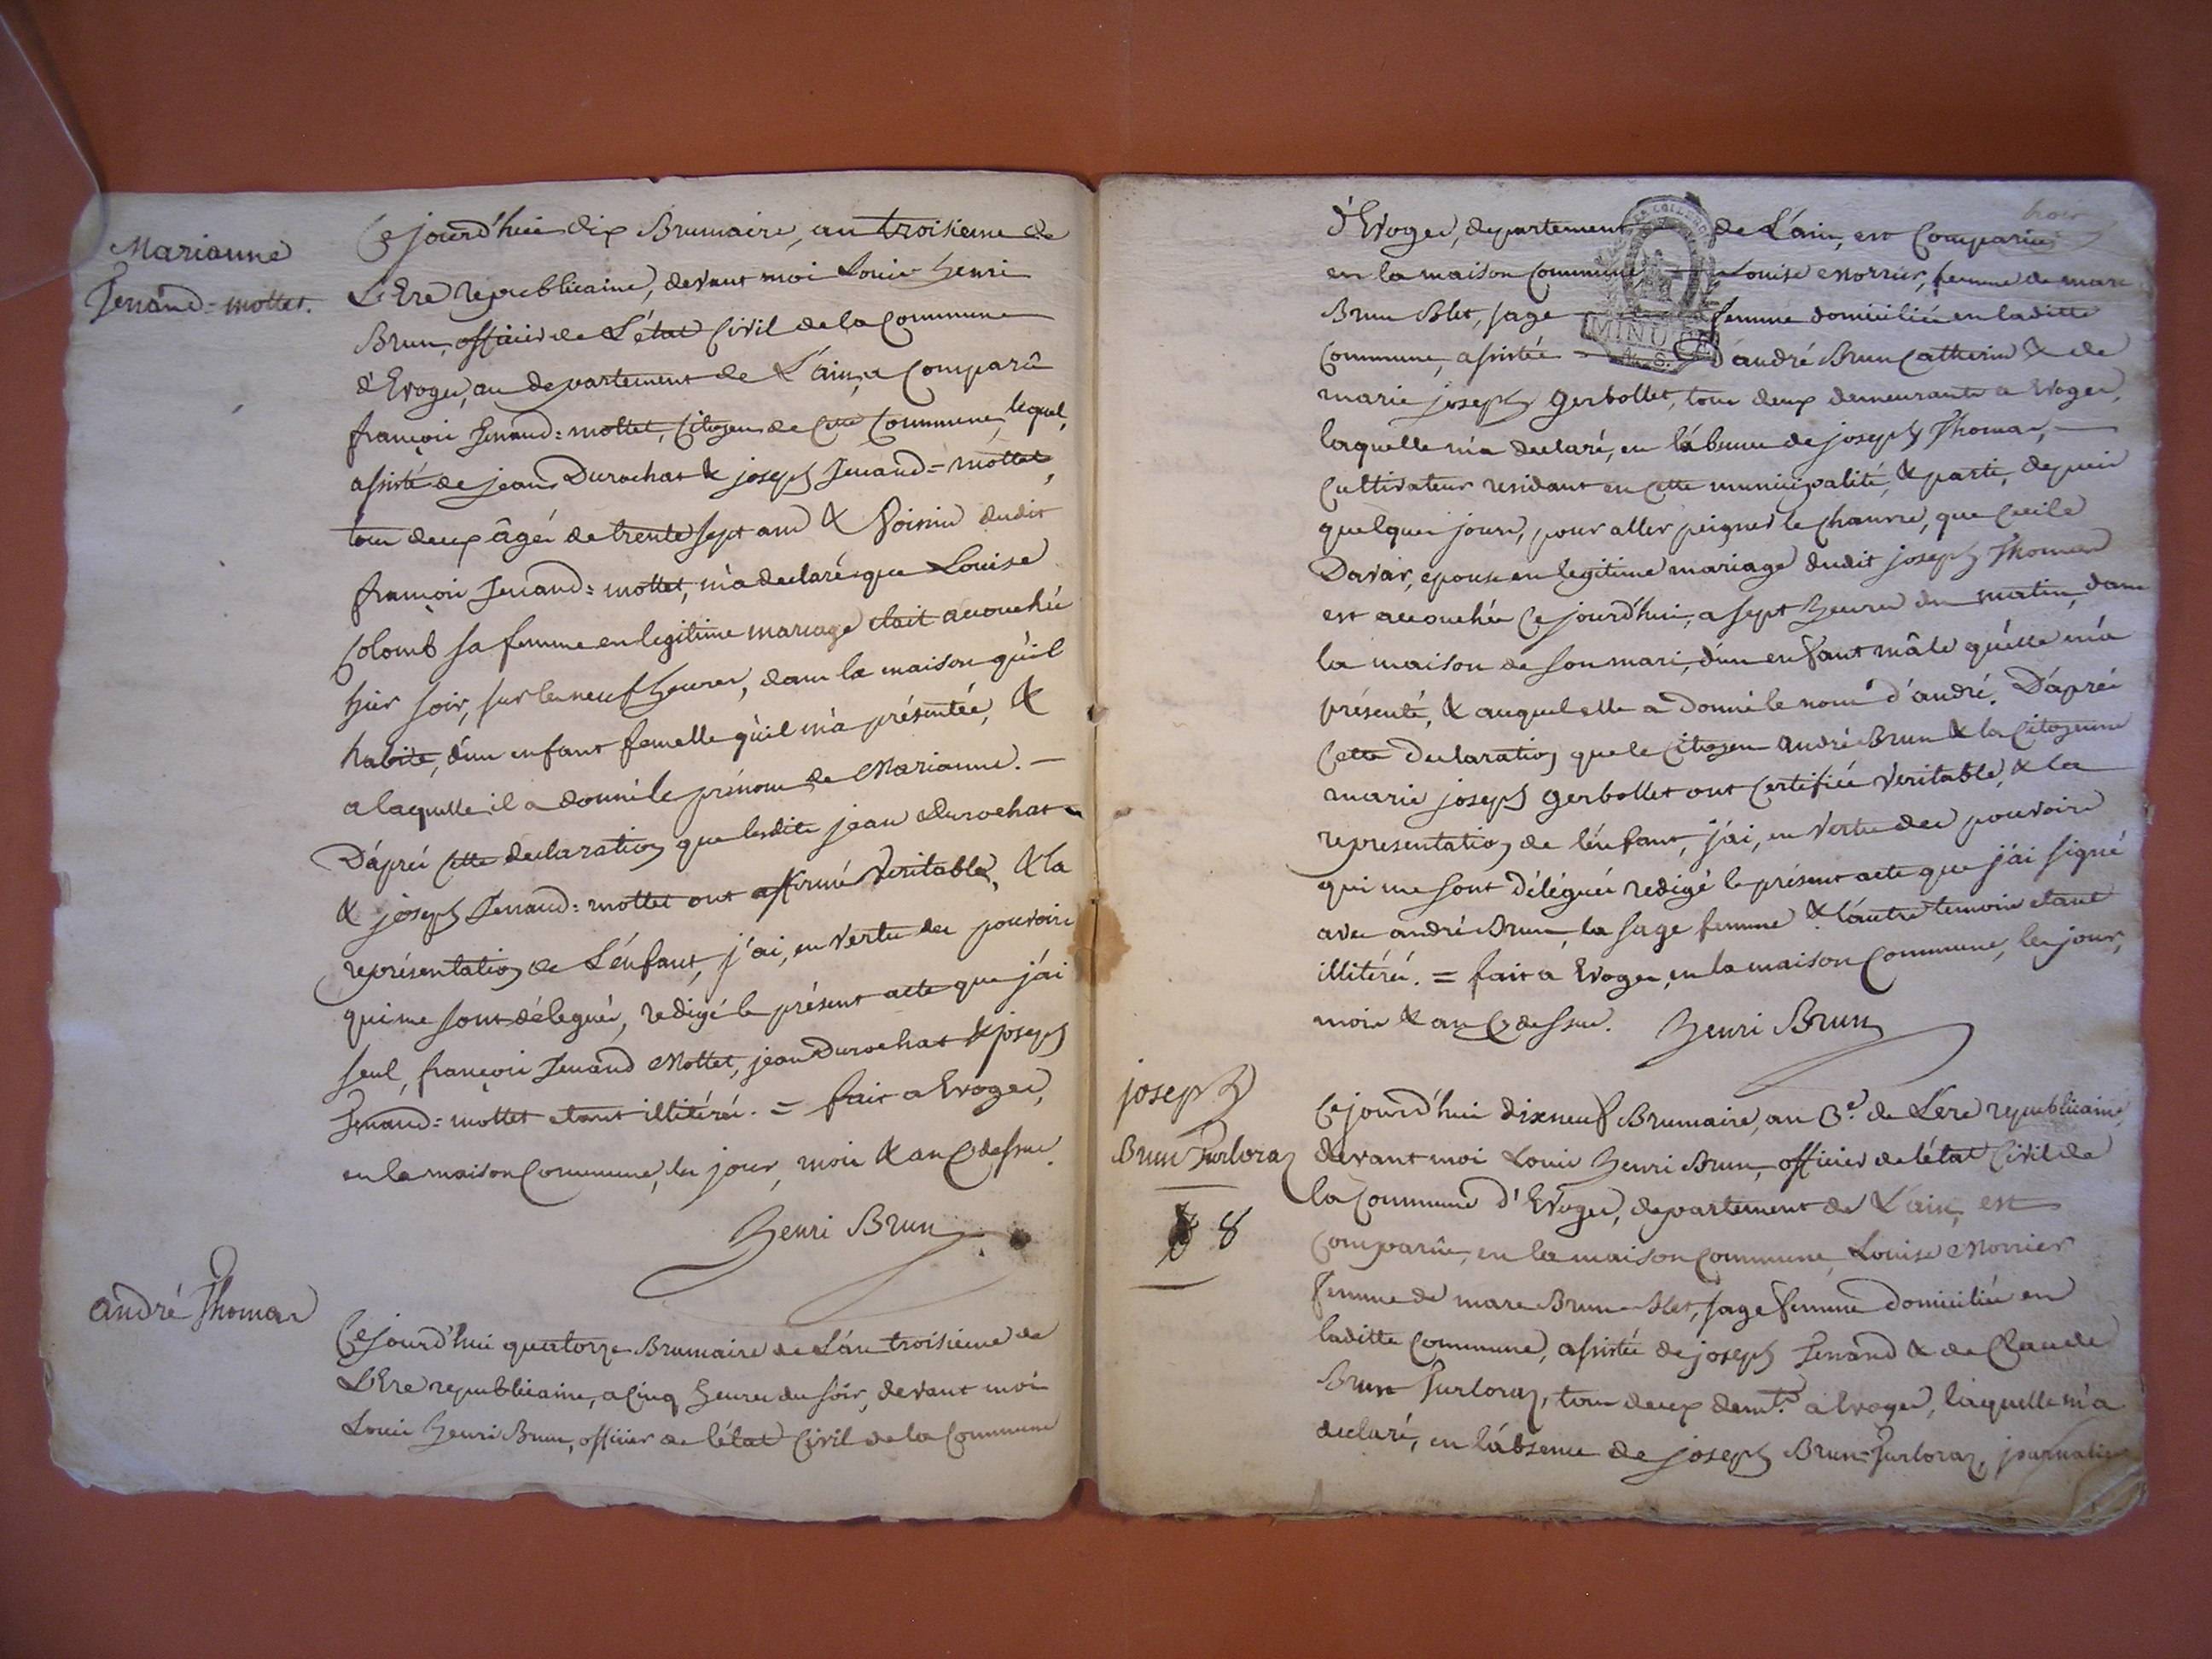 Marianne
Jenand=mottet.
Cejourd'hui dix Brumaire, an troisieme de
L'Ere republicaine, devant moi Louis Henri
Brun, officier de L'état Civil de la Commune
d'Evoges, au departement de L'ain, a Comparû
françois Jenand=mottet, Citoyen de Cette Commune, lequel,
assisté de jean Durochat & joseph Jenand=mottet,
tous deux âgés de trente sept ans & Voisins dudit
françois Jenand=mottet, m'a declaré que Louise
Colomb sa femme en legitime mariage etait accouchée
hier soir, sur les neuf heures, dans la maison qu'il
habite, d'un enfant femelle qu'il m'a présentée, &
a laquelle il a donné le prénom de Marianne. —
D'après Cette declaration que lesdits jean Durochat
& joseph Jenand=mottet ont affirmé Veritable, & la
représentation de L'enfant, j'ai, en Vertu des pouvoirs
qui me sont délégués, redigé le présent acte que j'ai
seul, françois Jenand Mottet, jean Durochat & joseph
Jenand=mottet etant illitérés. = fait a Evoges,
en la maison Commune, les jour, mois & an Cy dessus.
Henri Brun
andré Thomas
Cejourd'hui quatorze Brumaire de L'an troisieme de
L'Ere republicaine, a Cinq heures du soir, devant moi
Louis Henri Brun, officier de l'état Civil de la Commune
trois
d'Evoges, departement de L'ain, est Comparue
en la maison Commune Louise Morrier, femme de marc
Brun Blet, sage femme domiciliée en laditte
MINUTE
Commune, assistée d'andré Brun Catherin & de
marie joseph Gerbollet, tous deux demeurants a Evoges,
laquelle m'a declaré, en l'absence de joseph Thomas, —
Cultivateur residant en Cette municipalité, & parti, depuis
quelques jours, pour aller peigner le Chanvre, que Cecile
Davar, epouse en legitime mariage dudit joseph Thomas
est accouchée Cejourd'hui, a sept heures du matin, dans
la maison de son mari, d'un enfant mâle qu'elle m'a
présenté, & auquel elle a donné le nom d'andré. D'après
Cette declaration que le Citoyen andré Brun & la Citoyenne
marie joseph Gerbollet ont Certifiée Veritable, & la
representation de l'enfant, j'ai, en Vertu des pouvoirs
qui me sont délégués redigé le présent acte que j'ai signé
avec andré Brun, la sage femme & l'autre temoin etant
illitérés. = fait a Evoges, en la maison Commune, les jour,
mois & an Cy dessus. Henri Brun
joseph
Brun Jurloraz
8
Cejourd'hui dixneuf Brumaire, an 3e. de L'ere republicaine,
devant moi Louis Henri Brun, officier de l'état Civil de
la Commune d'Evoges, departement de L'ain, est
Comparue, en la maison Commune, Louise Morrier
femme de marc Brun-Blet, sage femme domiciliée en
laditte Commune, assistée de joseph Jenand & de Claude
Brun Jurloraz, tous deux demts. a Evoges, laquelle m'a
declaré, en l'absence de joseph Brun-Jurloraz, journalier